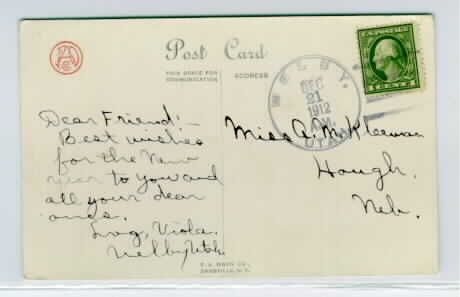 Post Card
THIS SPACE FOR
COMMUNICATION
ADDRESS
WELBY.
DEC
21
1912
A.M.
UTAH
1 CENT 1
Dear Friend:-
Best wishes
for the New
Year to you and
all your dear
ones.
Viola.
Welby Utah.
Miss A. McKleeman
Hough.
Neb.
DANSVILLE, N.Y.